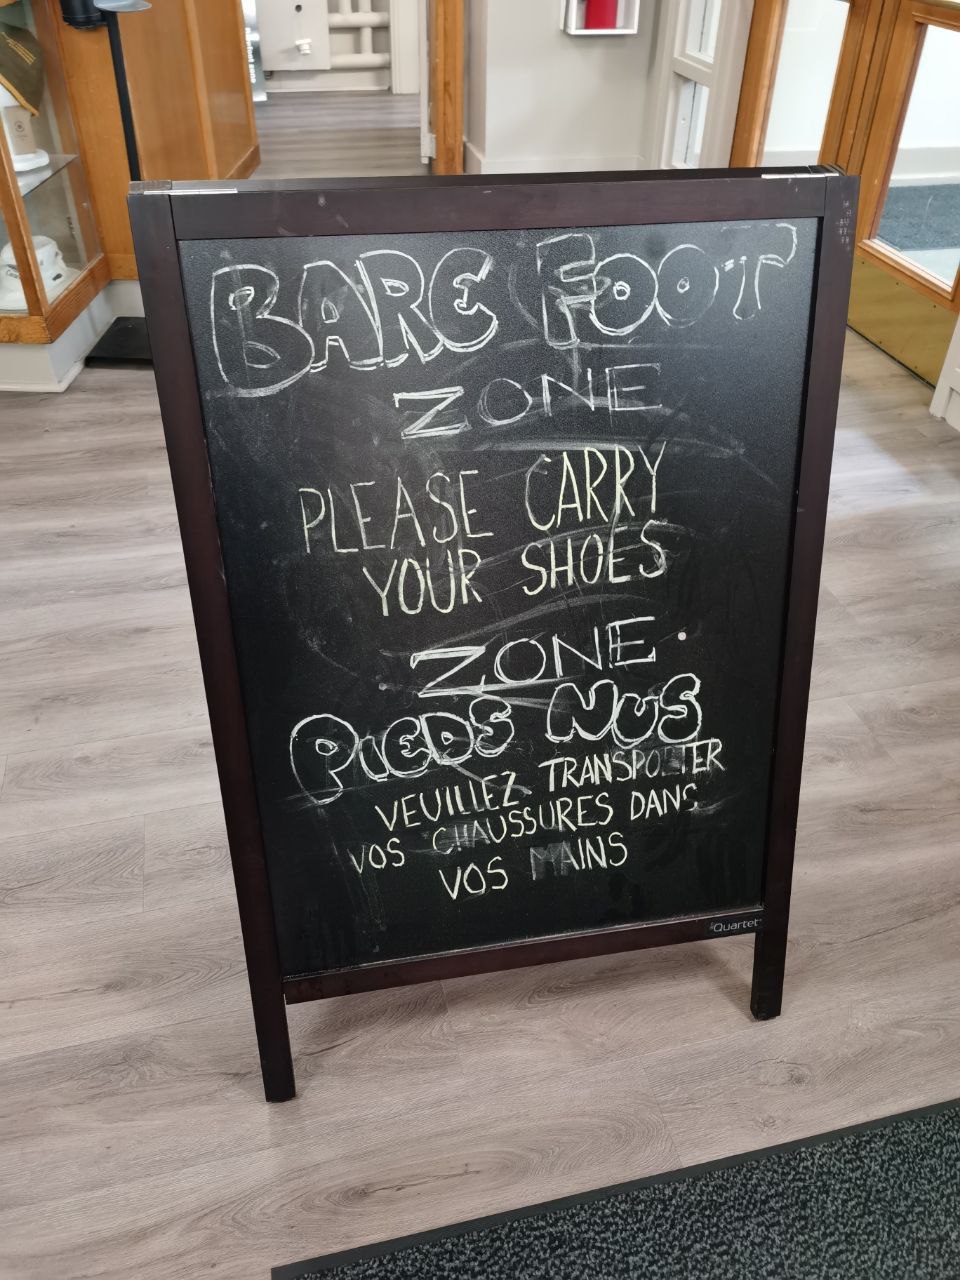 BARE FOOT
ZONE
PLEASE CARRY
YOUR SHOES
ZONE
PIEDS NUS
VEUILLEZ TRANSPORTER
VOS CHAUSSURES DANS
VOS MAINS
Quartet